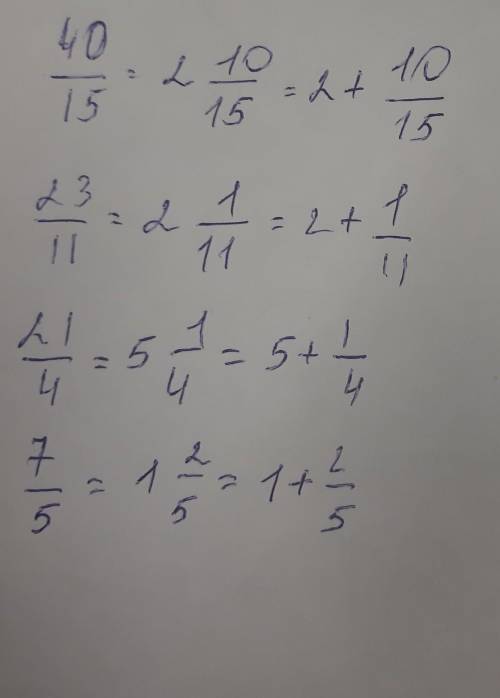 40/15 = 2 10/15 = 2 + 10/15
23/11 = 2 1/11 = 2 + 1/11
21/4 = 5 1/4 = 5 + 1/4
7/5 = 1 2/5 = 1 + 2/5